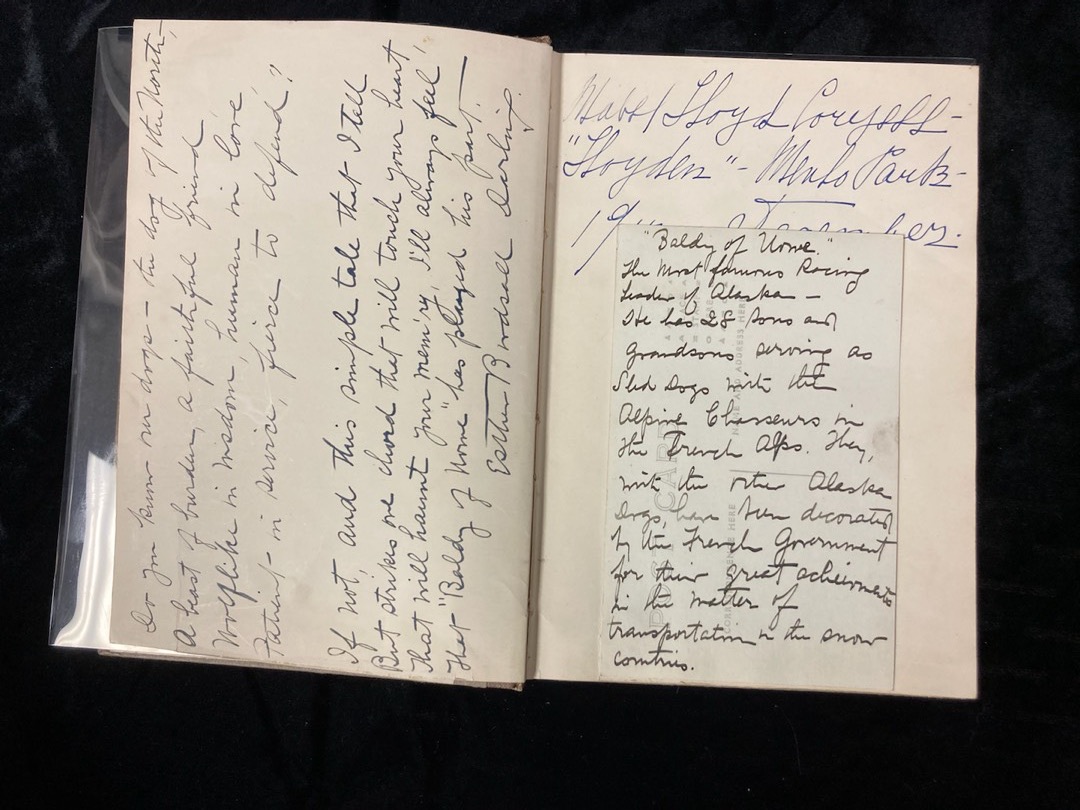 Do you know our dogs - the dog of the North,
A beast of burden, a faithful friend
Wolflike in wisdom, human in love
Patient in service, fierce to defend?
If not, and this simple tale that I tell
But strikes one chord that will touch your heart
That will haunt your mem'ry, I'll always feel
That "Baldy of Nome" has played his part.
Esther Birdsall Darling.
Mabel Lloyd Coryell -
"Lloyden" - Menlo Park -
"Baldy of Nome."
The Most famous Racing
Leader of Alaska -
He has 28 Sons and
Grandsons serving as
Sled Dogs with the
Alpine Chasseurs in
the French Alps. They,
with the other Alaska
Dogs, have been decorated
by the French Government
for their great acheivments
in the matter of
transportation in the snow
countries.
POST CARD
NAME AND ADDRESS HERE